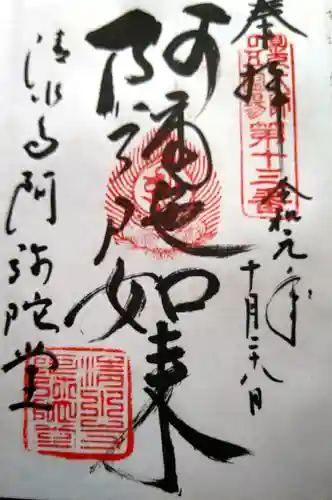 奉拝
第十三番
令和元年
十月二十八日
阿弥陀如来
清水寺阿弥陀堂